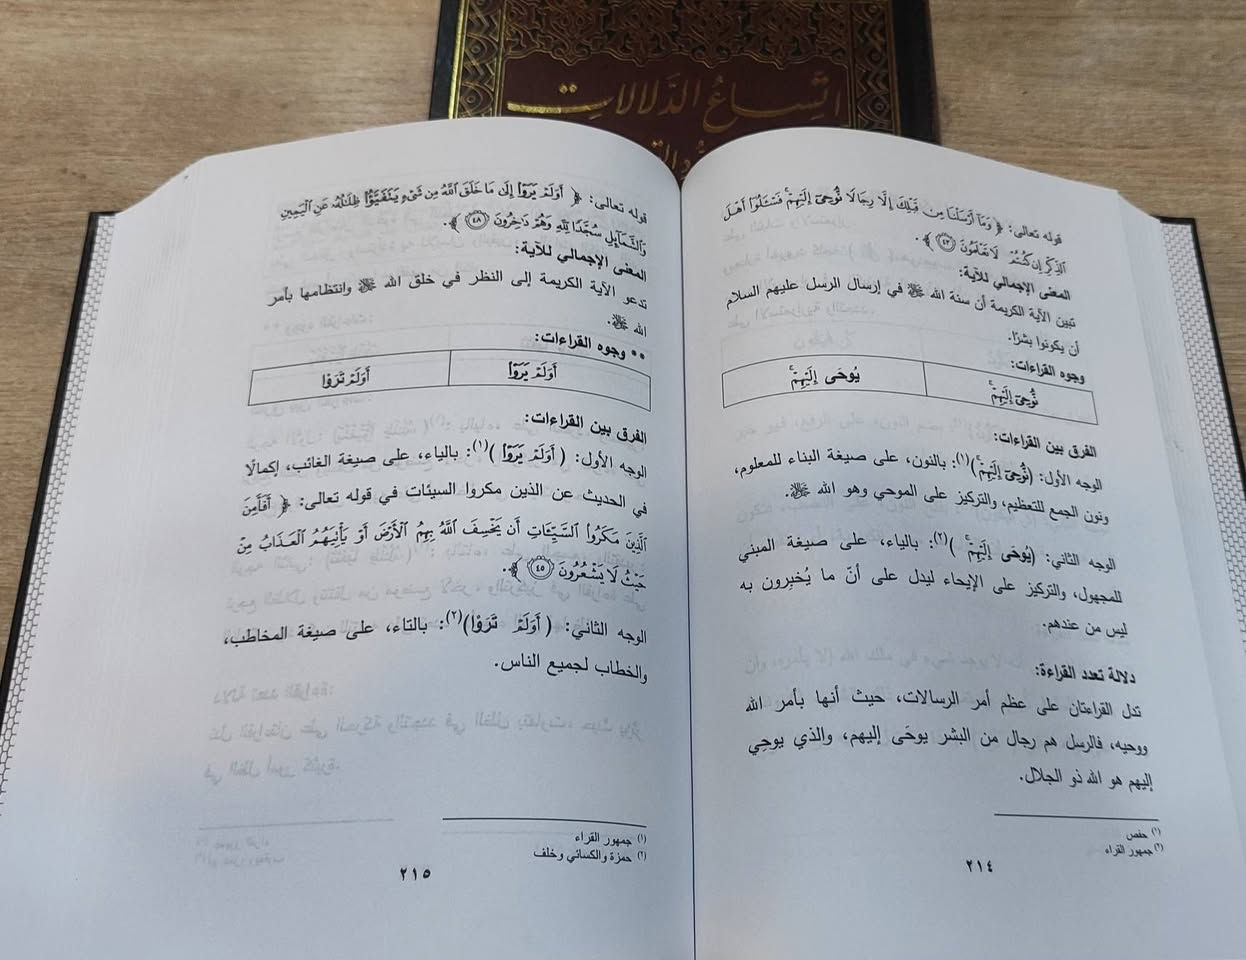 اتساع الدلالات
قوله تعالى: ﴿ وَمَآ أَرْسَلْنَا مِن قَبْلِكَ إِلَّا رِجَالًا نُّوحِىٓ إِلَيْهِمْ ۚ فَسْـَٔلُوٓا۟ أَهْلَ
ٱلذِّكْرِ إِن كُنتُمْ لَا تَعْلَمُونَ ٤٣ ﴾.
المعنى الإجمالي للآية:
تبين الآية الكريمة أن سنة الله ﷻ في إرسال الرسل عليهم السلام
أن يكونوا بشرًا.
وجوه القراءات:
نُّوحِىٓ إِلَيْهِمْ ۚ
يُوحَى إِلَيْهِمْ ۚ
الفرق بين القراءات:
الوجه الأول: (نُّوحِىٓ إِلَيْهِمْ ۚ)(١): بالنون، على صيغة البناء للمعلوم،
ونون الجمع للتعظيم، والتركيز على الموحي وهو الله ﷻ.
الوجه الثاني: (يُوحَى إِلَيْهِمْ ۚ )(٢): بالياء، على صيغة المبني
للمجهول، والتركيز على الإيحاء ليدل على أنّ ما يُخبِرون به
ليس من عندهم.
دلالة تعدد القراءة:
تدل القراءتان على عظم أمر الرسالات، حيث أنها بأمر الله
ووحيه، فالرسل هم رجال من البشر يوحَى إليهم، والذي يوحِي
إليهم هو الله ذو الجلال.
(١) حفص
(٢) جمهور القراء
٢١٤
قوله تعالى: ﴿ أَوَلَمْ يَرَوْا۟ إِلَىٰ مَا خَلَقَ ٱللَّهُ مِن شَىْءٍ يَتَفَيَّؤُا۟ ظِلَـٰلُهُۥ عَنِ ٱلْيَمِينِ
وَٱلشَّمَآئِلِ سُجَّدًا لِّلَّهِ وَهُمْ دَٰخِرُونَ ٤٨ ﴾.
المعنى الإجمالي للآية:
تدعو الآية الكريمة إلى النظر في خلق الله ﷻ وانتظامها بأمر
الله ﷻ.
•• وجوه القراءات:
أَوَلَمْ يَرَوْا۟
أَوَلَمْ تَرَوْا۟
الفرق بين القراءات:
الوجه الأول: ( أَوَلَمْ يَرَوْا۟ )(١): بالياء، على صيغة الغائب، إكمالًا
في الحديث عن الذين مكروا السيئات في قوله تعالى: ﴿ أَفَأَمِنَ
ٱلَّذِينَ مَكَرُوا۟ ٱلسَّيِّـَٔاتِ أَن يَخْسِفَ ٱللَّهُ بِهِمُ ٱلْأَرْضَ أَوْ يَأْتِيَهُمُ ٱلْعَذَابُ مِنْ
حَيْثُ لَا يَشْعُرُونَ ٤٥ ﴾.
الوجه الثاني: ( أَوَلَمْ تَرَوْا۟)(٢): بالتاء، على صيغة المخاطب،
والخطاب لجميع الناس.
(١) جمهور القراء
(٢) حمزة والكسائي وخلف
٢١٥